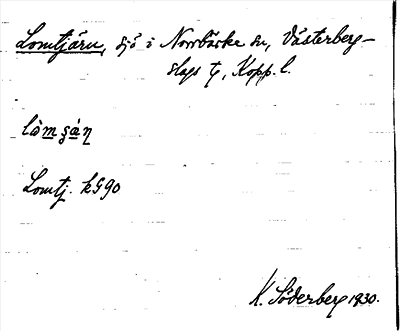 Lomtjärn, sjö i Norrbärke sn, Västerberg-
slags tg, Kopp. l.
Lomtj. kG90
K. Söderberg 1930.